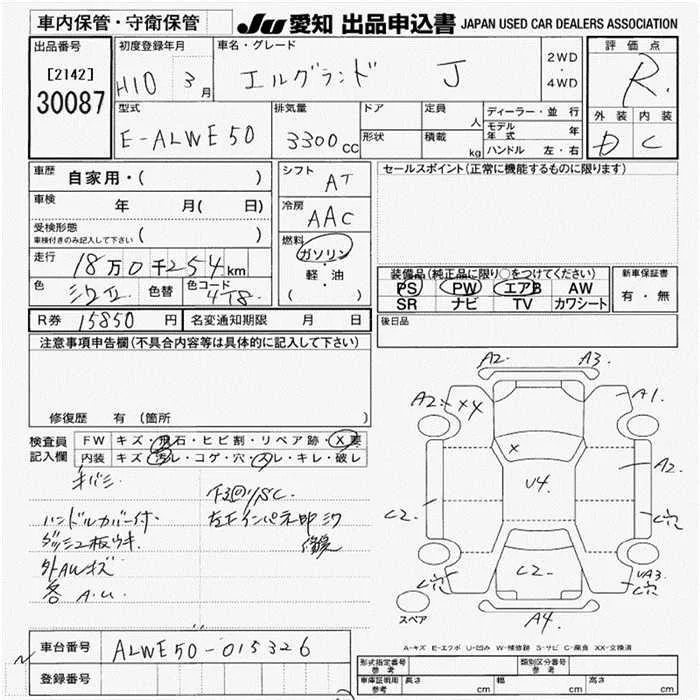 車内保管・守衛保管
JU 愛知 出品申込書 JAPAN USED CAR DEALERS ASSOCIATION
出品番号
[2142]
30087
初度登録年月
H10 3月
車名・グレード
エルグランド J
2WD
・
4WD
評価点
R.
外装 内装
D C
型式
E-ALWE50
排気量
3300cc
ドア
形状
定員
人
積載
kg
ディーラー・並行
モデル年式 年
ハンドル 左・右
車歴 自家用・( )
車検 年 月( 日)
受検形態
車検付きのみ記入して下さい ( )
走行 18万0千254km
色
色替
色コード
4T8.
シフト AT
冷房 AAC
燃料
ガソリン
・
軽・油
( )
セールスポイント(正常に機能するものに限ります)
装備品(純正品に限り○をつけてください)
PS PW エアB AW
SR ナビ TV カワシート
新車保証書
有・無
R券 15850円 名変通知期限 月 日
後日品
注意事項申告欄(不具合内容等は具体的に記入して下さい)
修復歴 有(箇所 )
検査員記入欄
FW キズ・飛石・ヒビ割・リペア跡・X要
内装 キズ・汚レ・コゲ・穴・スレ・キレ・破レ
キバミ
ハンドルカバー付
ダッシュ板ウキ
外AWキズ
各 A.U.
A2. A3.
A2 X4 A1.
X
A2.
U4.
C2.
C穴
C2.
C穴 UA3
C穴
A4.
スペア
A-キズ E-エクボ U-凹み W-補修跡 S-サビ C-腐食 XX-交換済
車台番号 ALWE50-015326
登録番号
形式指定番号
参考
類別区分番号
参考
車庫証明用
参考
長さ cm 幅 cm 高さ cm